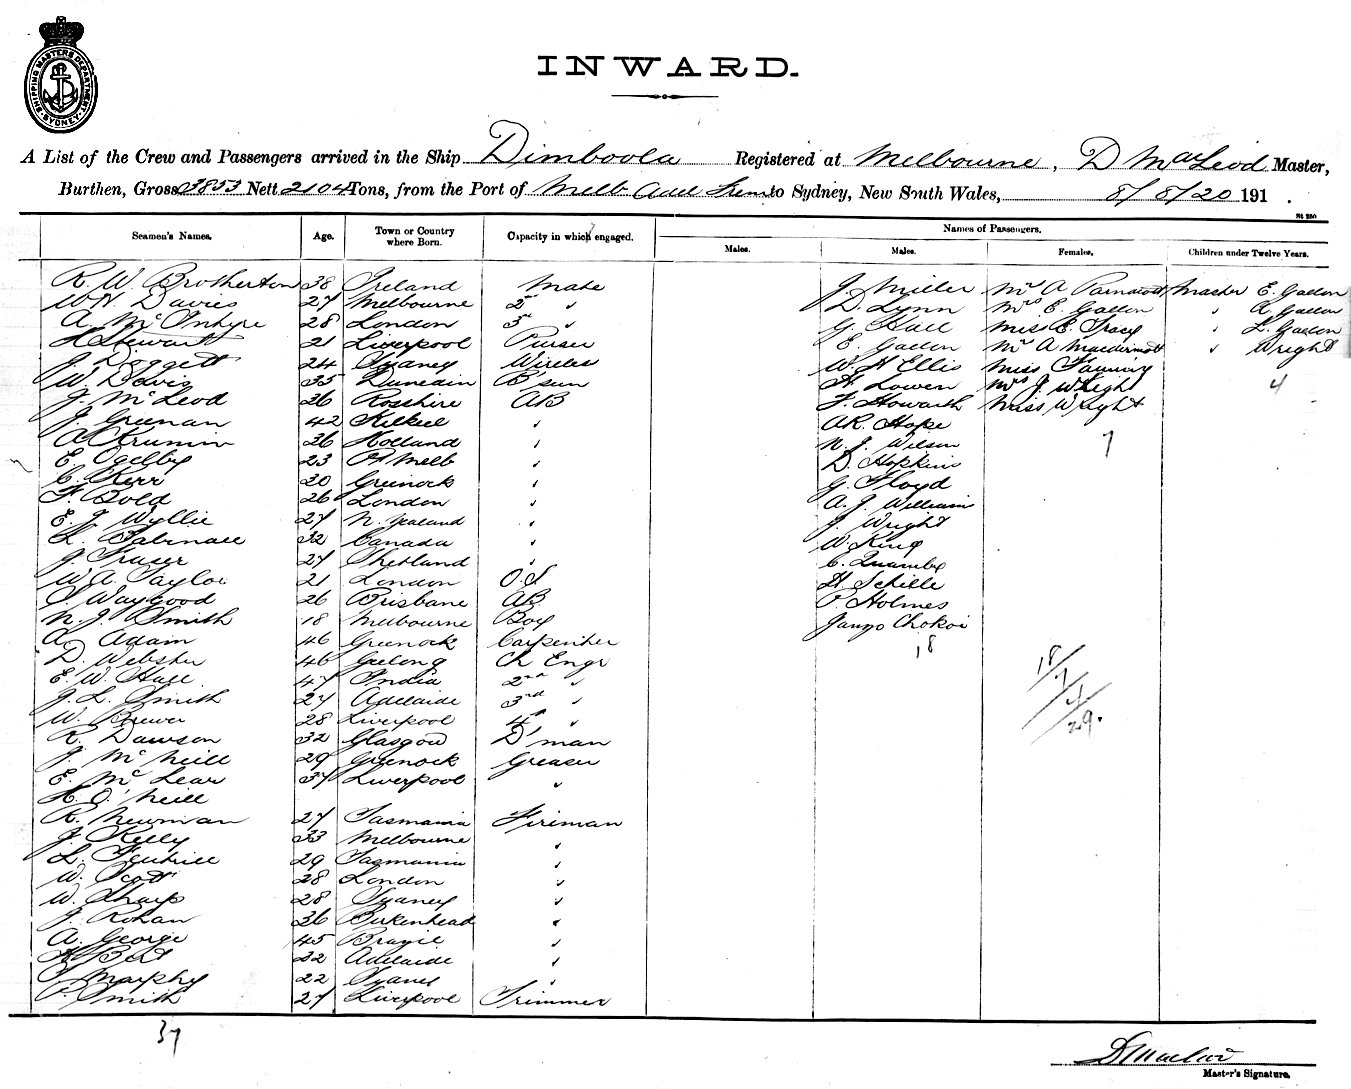 SHIPPING MASTERS DEPARTMENT SYDNEY
INWARD.
A List of the Crew and Passengers arrived in the Ship Dimboola Registered at Melbourne, D MacLeod Master,
Burthen, Gross 3853 Nett 2104 Tons, from the Port of Melb Adel to Sydney, New South Wales, 8/8/20 191 .
Names of Passengers.
Seamen's Names. Age. Town or Country where Born. Capacity in which engaged. Males. Males. Females. Children under Twelve Years.
R. W Brotherton 38 Ireland Mate J Miller Mrs A Master E. Gallon
W N. Davies 27 Melbourne 2nd " D. Lynn Mrs E. Gallon " A. Gallon
A McIntyre 28 London 3rd " G. Hall Miss E. Tracy " L. Gallon
H Stewart 21 Liverpool Purser E Gallon Mrs A Macdermott " Wright
J. Doggett 24 Sydney Wireless W. H Ellis Miss 4
W. Davis 35 Dunedin B'sun H. Lowen Mrs J. Wright
J. McLeod 36 Rosshire AB F. Howarth Miss Wright
J. Greenan 42 Kilkeel " AR. Hope 7
A Krumin 26 Holland " N. J. Wilson
E. Ogelby 23 Pt Melb " D. Hopkins
C. Kerr 30 Greenock " G. Floyd
F. Bold 26 London " A. J. William
E. J Wyllie 27 N. Zealand " J. Wright
L. 32 Canada " W. King
J. Fraser 27 Shetland " C. Quamby
W. A. Taylor 21 London O.S H. Schille
S. Waygood 26 Brisbane AB P. Holmes
N. J. Smith 18 Melbourne Boy Janzo Chokoi
A. Adam 46 Greenock Carpenter 18
D. Webster 46 Geelong Ch Engr 18/
E. W. Hall 47 India 2nd " 7/
J. L. Smith 27 Adelaide 3rd " 4/
W. Brewer 28 Liverpool 4th " 29.
R. Dawson 32 Glasgow D'man
J. McNeill 29 Greenock Greaser
E. McLear 37 Liverpool "
H. O'Neill
R. Newman 27 Tasmania Fireman
J. Kelly 33 Melbourne "
L. 29 Tasmania "
W. Scott 28 London "
W. Sharp 28 Sydney "
J. Rohan 36 Birkenhead "
A. George 45 "
H Bert 22 Adelaide "
J Murphy 22 Sydney "
P. Smith 27 Liverpool Trimmer
37
Master's Signature.